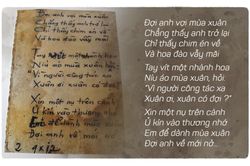 Đợi anh với mùa xuân
Chẳng thấy anh trở lại
Chỉ thấy chim én về
Và hoa đào vẫy mãi
Tay vít một nhánh hoa
Níu áo mùa xuân, hỏi
"Vì người công tác xa
Xuân ơi, xuân có đợi ?"
Xin một nụ trên cành
Ủ kín vào thương nhớ
Em để dành mùa xuân
Đợi anh về mới nở
Đợi anh với mùa xuân
Chẳng thấy anh trở lại
Chỉ thấy chim én về
Và hoa đào vẫy mãi
Tay vít một nhánh hoa
Níu áo mùa xuân, hỏi
"Vì người công tác xa
Xuân ơi, xuân có đợi ?".
Xin một nụ trên cành
Ủ kín vào thương nhớ
Em để dành mùa xuân
Đợi anh về mới nở .